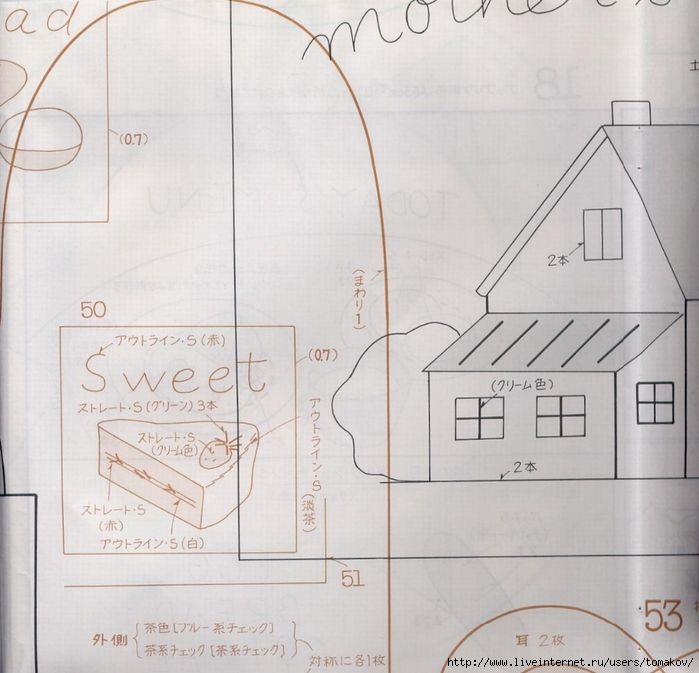 ad
mother's
(0.7)
18
TODAY'S MENU
土
2本
(まわり1)
50
アウトライン・S(赤)
(0.7)
Sweet
ストレート・S(グリーン)3本
ストレート・S
(クリーム色)
アウトライン・S(淡茶)
(クリーム色)
2本
ストレート・S
(赤)
アウトライン・S(白)
51
53
外側
茶色〔ブルー系チェック〕
茶系チェック〔茶系チェック〕
対称に各1枚
耳 2枚
http://www.liveinternet.ru/users/tomakov/